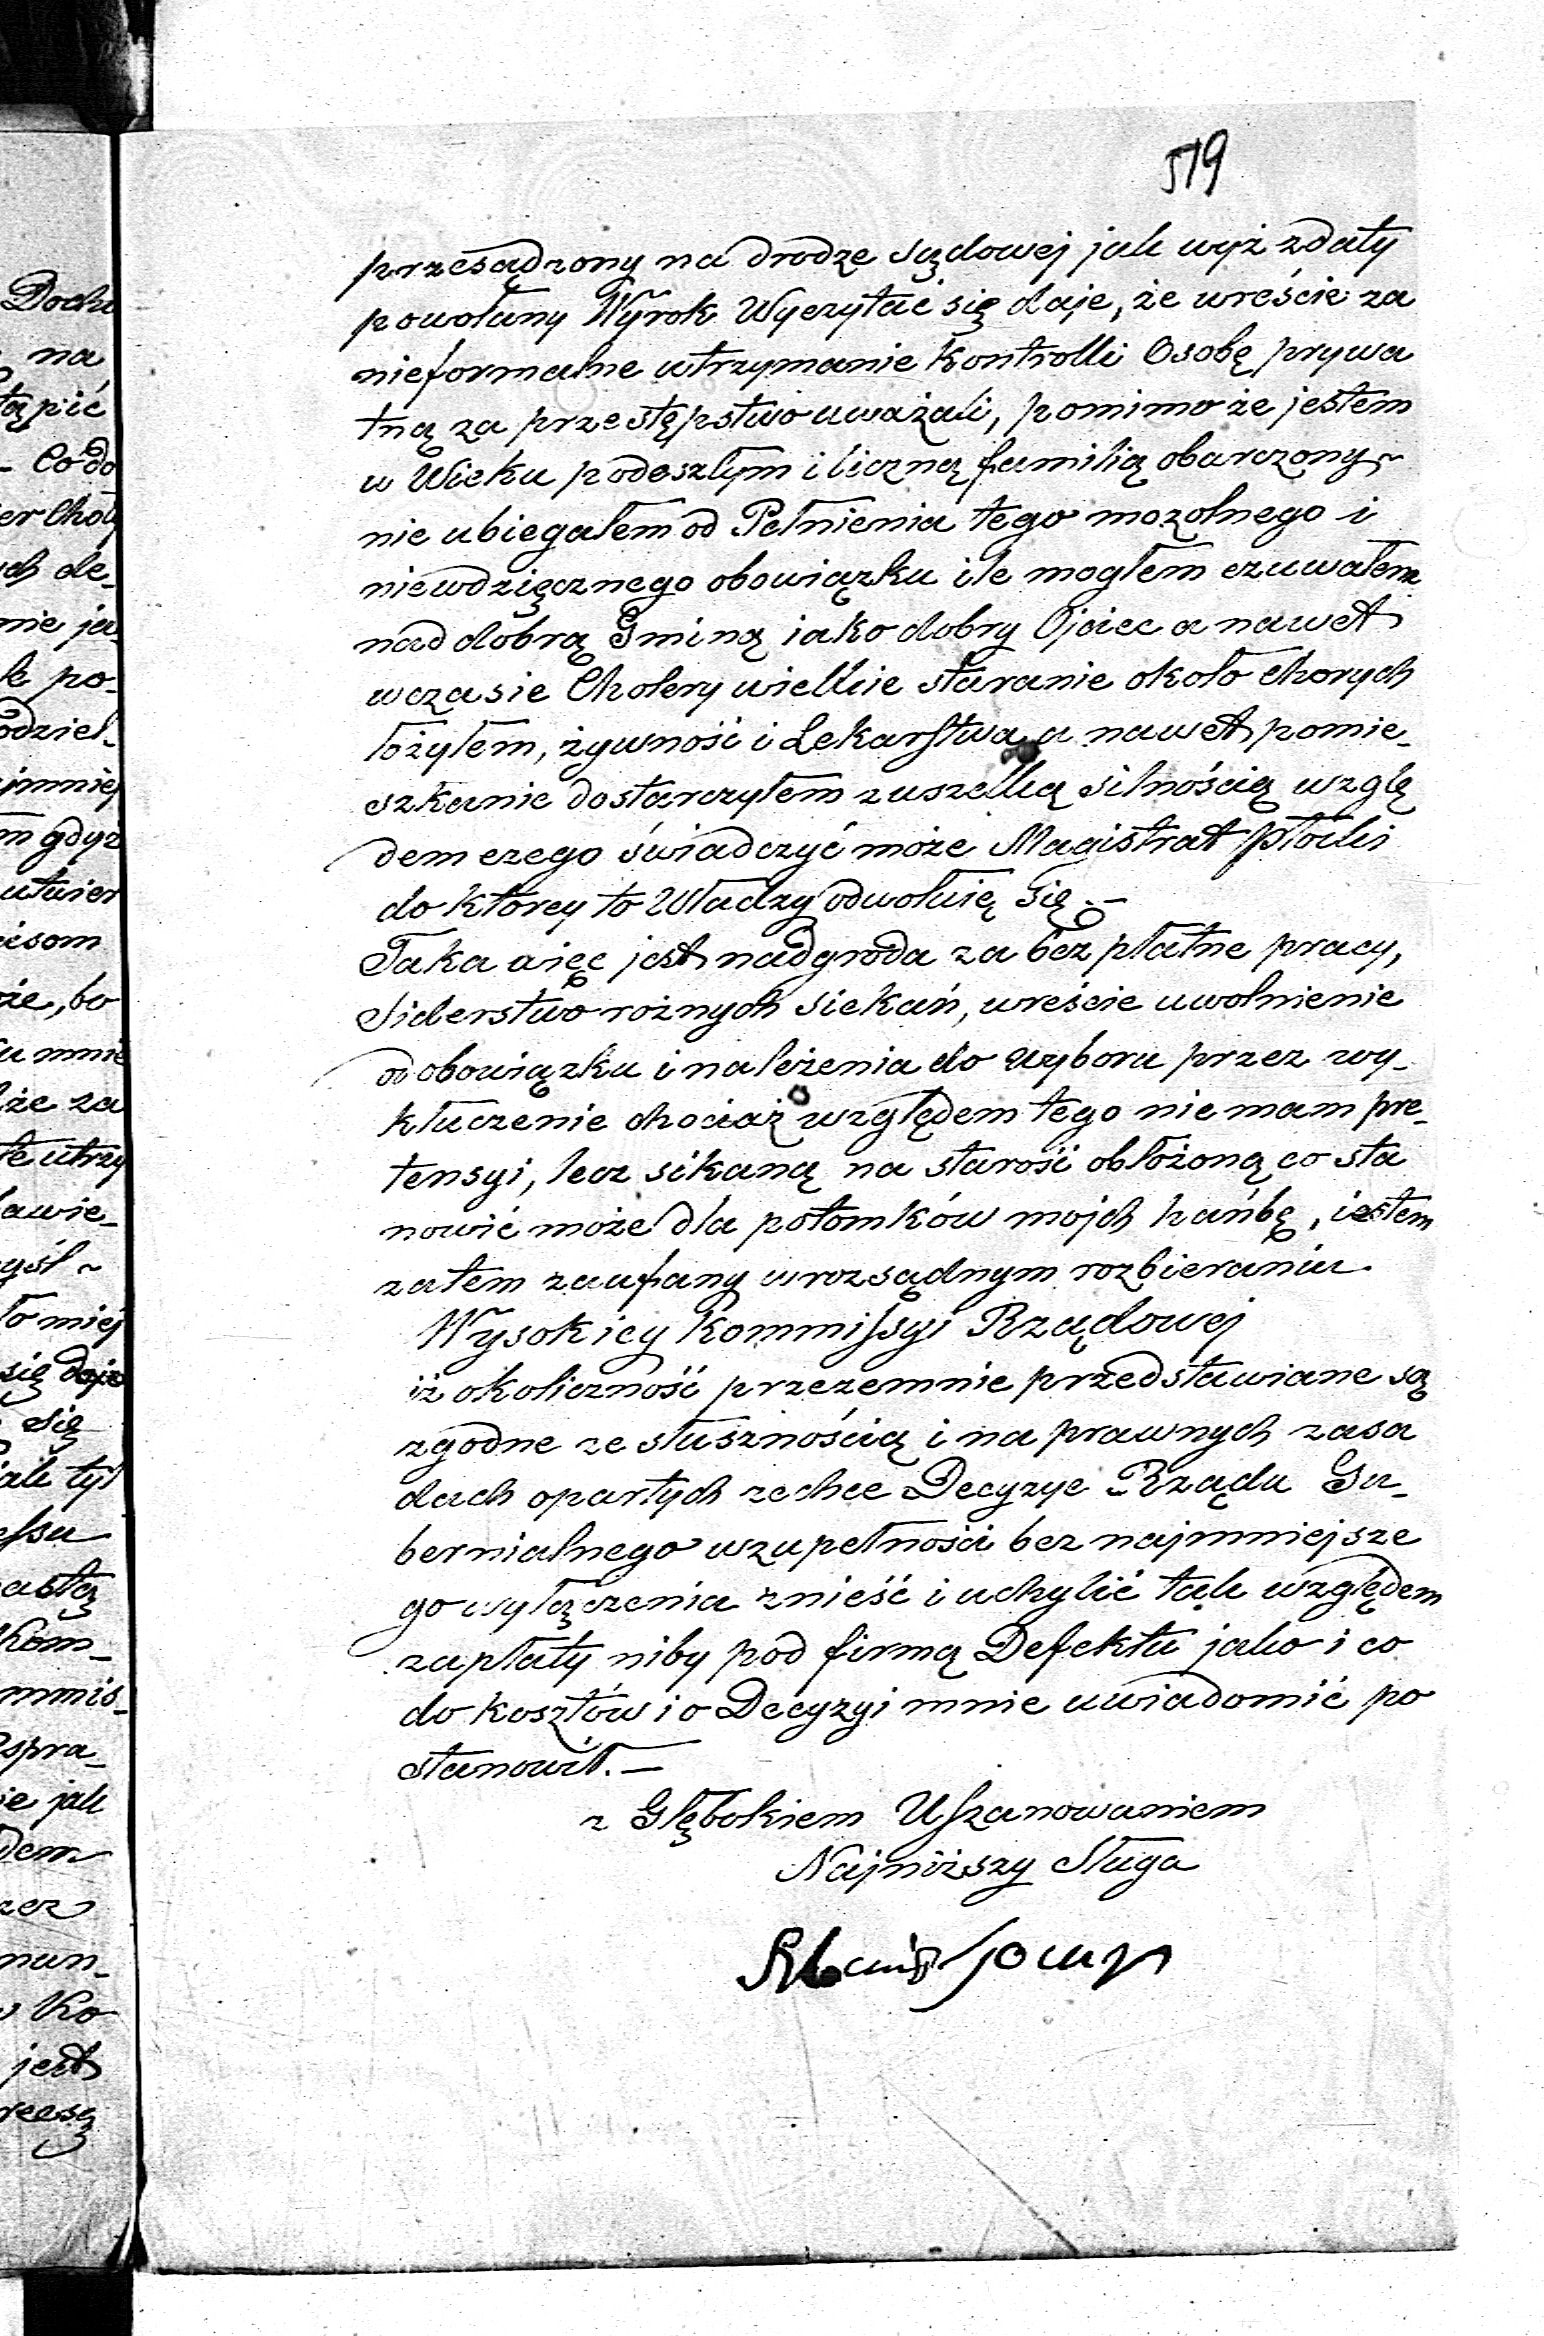 519
przesądzony na drodze sądowej jak wyż zdały
powołany Wyrok Wyczytać się daje, że wreście za
nieformalne utrzymanie Kontrolli Osobę prywa
tną za przestępstwo uważali, pomimo że jestem
w Wieku podeszłym i liczną familią obarczony~
nie ubiegałem od Pełnienia tego mozolnego i
niewdzięcznego obowiązku ile mogłem czuwałem
nad dobrą Gminą iako dobry Ojciec a nawet
w czasie Cholery wielkie staranie około Chorych
łożyłem, żywność i Lekarstwa a nawet pomie_
szkanie dostarczyłem z uszelką silnością wzglę
dem czego świadczyć może Magistrat Płocki
do którey to Władzy odwołuię się._
Taka więc jest nadgroda za bez płatne pracy,
Siderstwo rożnych siekań, wreście uwolnienie
od obowiązku i należenia do wyboru przez wy_
kluczenie chociaż względem tego nie mam pre_
tensyi, lecz sikaną na starość obłożoną co sta
nowić może dla potomków mojch hańbę, iestem
zatem zaufany w rozsądnym rozbieraniu
Wysokiey Kommissyi Rządowej
iż okoliczność przezemnie przedstawiane są
zgodne ze słusznością i na prawnych zasa
dach opartych zechce Decyzye Rządu Gu_
bernialnego w zupełności bez najmniejsze
go wyłączenia znieść i uchylić tak względem
zapłaty niby pod firmą Defektu jako i co
do kosztów i o Decyzyi mnie uwiadomić po
stanowił._
z Głębokiem Uszanowaniem
Najniższy Sługa
Docho
na
tąpić
_ Co do
ch de_
nie ja_
k po_
odziel_
jmniej
m gdyż
utwier
isom
że, bo
u mnie
że za
te utrzy
awie_
yśl ~
to miej
się daje
się
jak tyl
essu
astą
Kom_
mmis_
spra_
ie jak
dem
zez
mun_
w Ko
jest